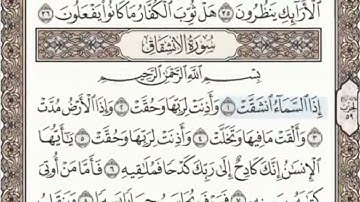 ٱلْأَرَآئِكِ يَنظُرُونَ ٣٥ هَلْ ثُوِّبَ ٱلْكُفَّارُ مَا كَانُوا۟ يَفْعَلُونَ ٣٦
سُورَةُ الِانْشِقَاقِ
بِسْمِ ٱللَّهِ ٱلرَّحْمَٰنِ ٱلرَّحِيمِ
إِذَا ٱلسَّمَآءُ ٱنشَقَّتْ ١ وَأَذِنَتْ لِرَبِّهَا وَحُقَّتْ ٢ وَإِذَا ٱلْأَرْضُ مُدَّتْ
٣ وَأَلْقَتْ مَا فِيهَا وَتَخَلَّتْ ٤ وَأَذِنَتْ لِرَبِّهَا وَحُقَّتْ ٥ يَٰٓأَيُّهَا
ٱلْإِنسَٰنُ إِنَّكَ كَادِحٌ إِلَىٰ رَبِّكَ كَدْحًا فَمُلَٰقِيهِ ٦ فَأَمَّا مَنْ أُوتِىَ
٥٩